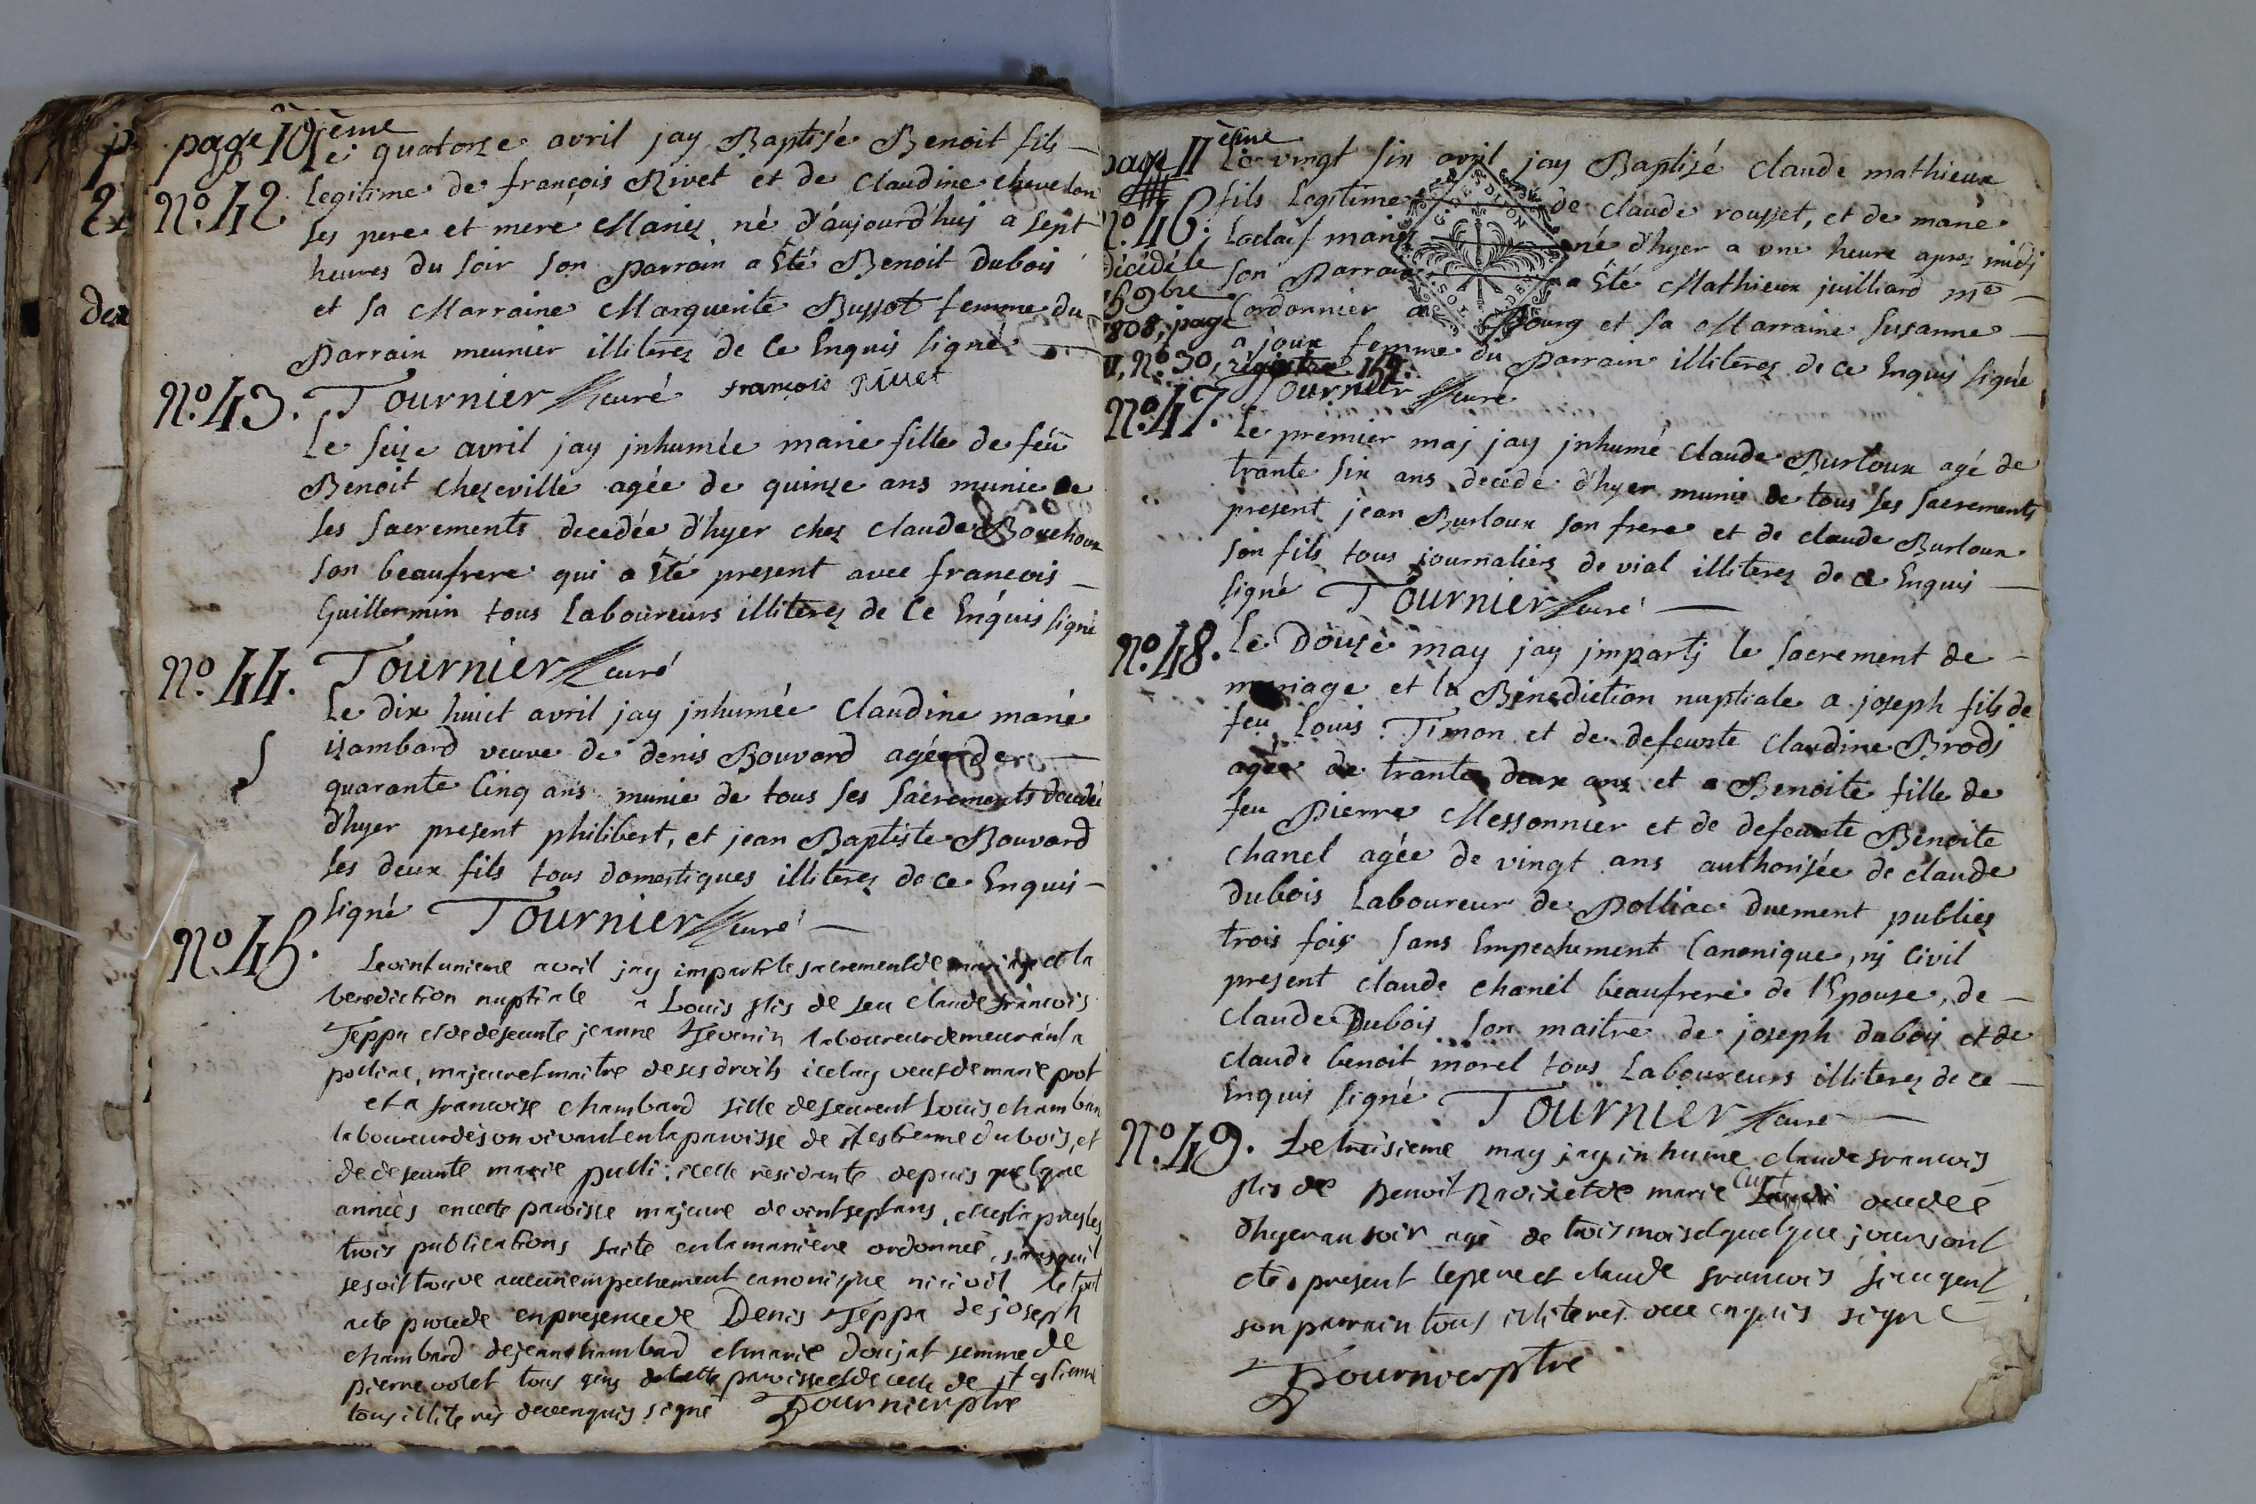 page 10ème
Le quatorze avril jay Baptisé Benoit fils
N.º 42
Legitime de françois Rivet et de Claudine chevelon
ses pere et mere Mariez né d'aujourd'huj a sept
heures du soir son parrain a Été Benoit Dubois
et sa Marraine Marguerite Bussot femme du
parrain meunier illiterez de Ce Enquis signé
N.º 43.
Tournier curé françois Rivet
Le seize avril jay jnhumée marie fille de feü
Benoit chezeville agée de quinze ans munie de
ses sacrements decedée d'hyer chez claude Bouchoux
son beaufrere qui a Été present avec françois
Guillermin tous Laboureurs illiterez de Ce Enquis signé
N.º 44.
Tournier curé
Le dix huict avril jay jnhumée Claudine marie
isambard veuve de denis Bouvard agée de
quarante Cinq ans munie de tous ses sacrements decedée
d'hyer present philibert, et jean Baptiste Bouvard
ses deux fils tous domestiques illiterez de ce Enquis
signé Tournier curé
N.º 45.
Le vint unieme avril jay imparti le sacrement de mariage et la
benediction nuptiale a Louis fils de feu claude francois
Teppa et de defeunte jeanne Tevenin laboureur demeurant a
polliac, majeur et maitre de ses droits icelay veuf de marie prot
et a francoise chambard fille de feu rent Louis chambar
laboureur de son vivant en la paroisse de st estienne du bois, et
de defeunte marie putti: icelle residante depuis quelque
années en cette paroisse majeure de vint sept ans, et ce apres les
trois publications faite en la maniere ordonnée, sans quil
se soit trouve aucun empechement canonique ni civil le tout
acte procede en presence de Denis Teppa de joseph
chambard de jean chambard et marie doujat femme de
pierre volet tous gens de cette paroisse et de celle de st estienne
tous illiterés de ce enquis signé Tournier ptre
page 11ème
Le vingt six avril jay Baptizé Claude mathieux
N.º 46.
fils Legitime de claude rousset, et de marie
Loclaif mariez né d'hyer a une heure apres midj
décédé le
son Parrain a Été Mathieux juilliard me
15 9bre
Cordonnier a Bourg et sa Marraine Susanne
1808, page
ajoux femme du parrain illiterez de ce Enquis signé
11, N.º 30, registre 159.
Tournier curé
N.º 47.
Le premier maj jay jnhumé Claude Burloux agé de
trante six ans decede d'hyer munis de tous ses sacrements
present jean Burloux son frere et de claude Burloux
son fils tous journaliers de vial illiterez de ce Enquis
signé Tournier curé
N.º 48.
Le Douze may jay jmpartj le sacrement de
mariage et la Benediction nuptiale a joseph fils de
feu Louis Timon et de defeunte Claudine Brodj
agée de trante deux ans et a Benoite fille de
feu Pierre Messonnier et de defeunte Benoite
chanel agée de vingt ans authorisée de claude
dubois Laboureur de Polliac duement publiez
trois fois sans Empechement Canonique, nj Civil
present claude chanel beaufrere de l'Epouse, de
claude Dubois son maitre de joseph dubois et de
claude benoit morel tous Laboureurs illiterez de ce
Enquis signé Tournier curé
N.º 49.
Le troisieme may jay in humé claude francois
fils de Benoit Ravix et de marie Curt decedée
d'hyer au soir agé de trois mois et quelque jours ont
etés present le pere et claude francois
son parrain tous illiterés de ce enquis signé
Tournier ptre
G. DE DIJON